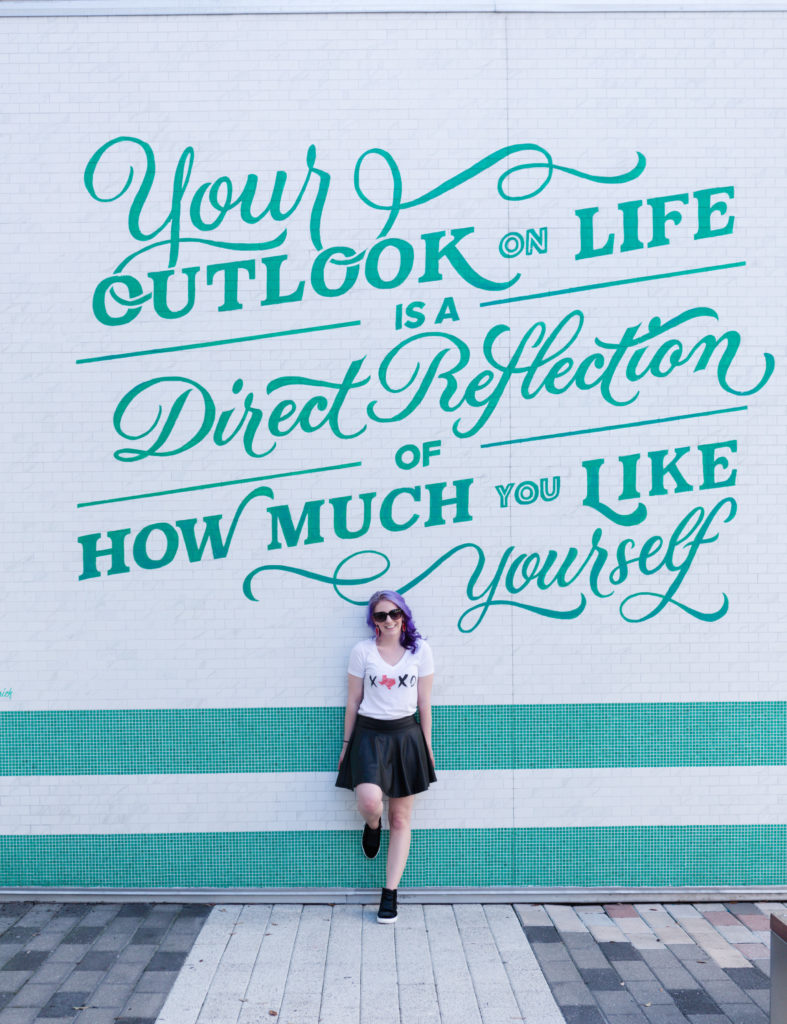 Your
OUTLOOK ON LIFE
IS A
Direct Reflection
OF
HOW MUCH YOU LIKE
Yourself
XOXO